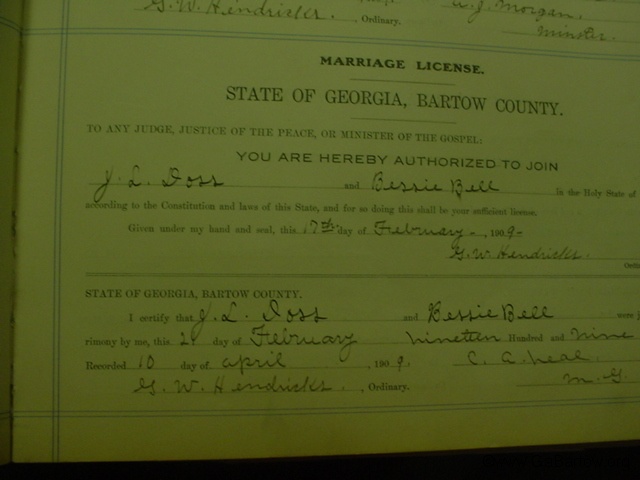 G. W. Hendricks. , Ordinary. W. J. Morgan.
minster.
MARRIAGE LICENSE.
STATE OF GEORGIA, BARTOW COUNTY.
TO ANY JUDGE, JUSTICE OF THE PEACE, OR MINISTER OF THE GOSPEL:
YOU ARE HEREBY AUTHORIZED TO JOIN
J. L. Doss and Bessie Bell in the Holy State of
according to the Constitution and laws of this State, and for so doing this shall be your sufficient license.
Given under my hand and seal, this 17th day of February , 1909
G. W. Hendricks.
Ordin
STATE OF GEORGIA, BARTOW COUNTY.
I certify that J. L. Doss and Bessie Bell were j
rimony by me, this day of February nineteen Hundred and nine
Recorded 10 day of april , 1909. C. A. Neal.
G. W. Hendricks. , Ordinary. M. G.